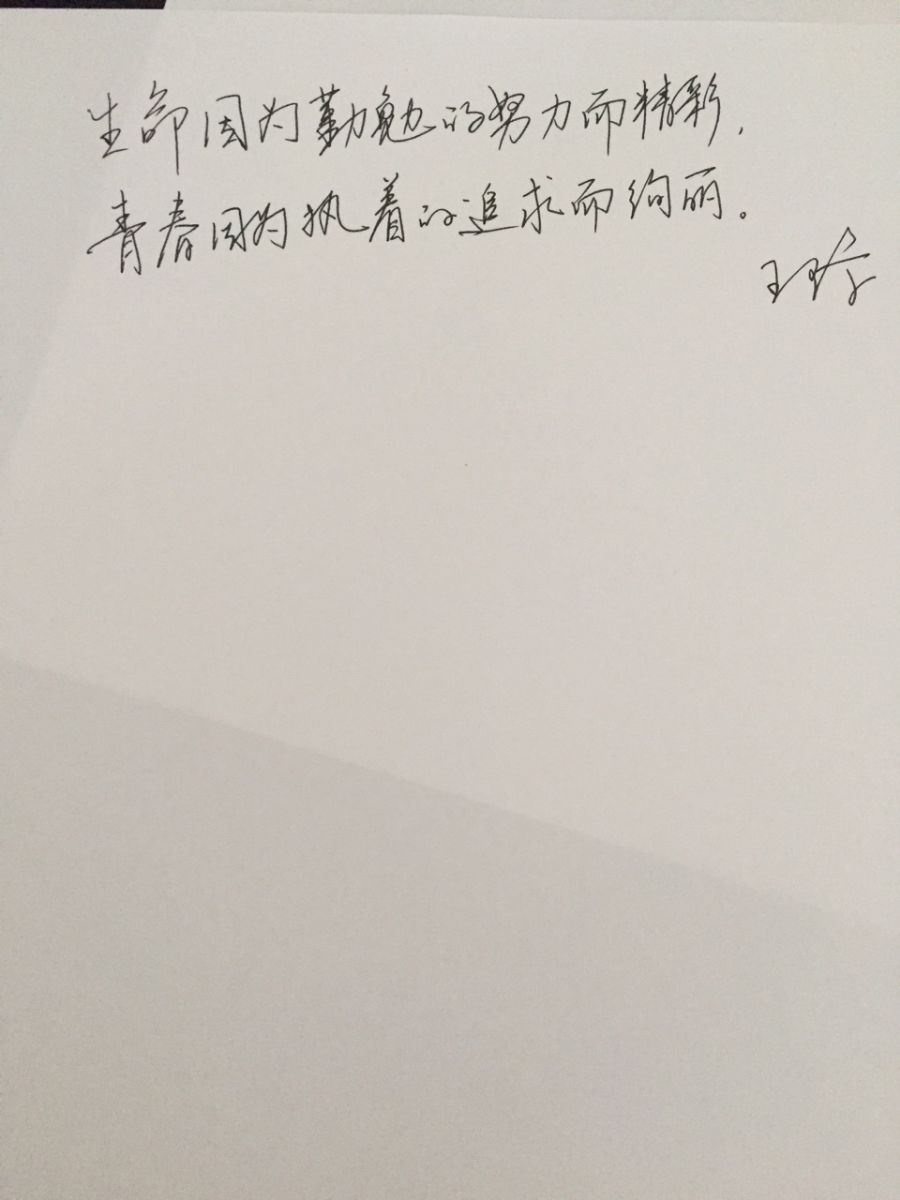 生命因为勤勉的努力而精彩,
青春因为执着的追求而绚丽。
王玲